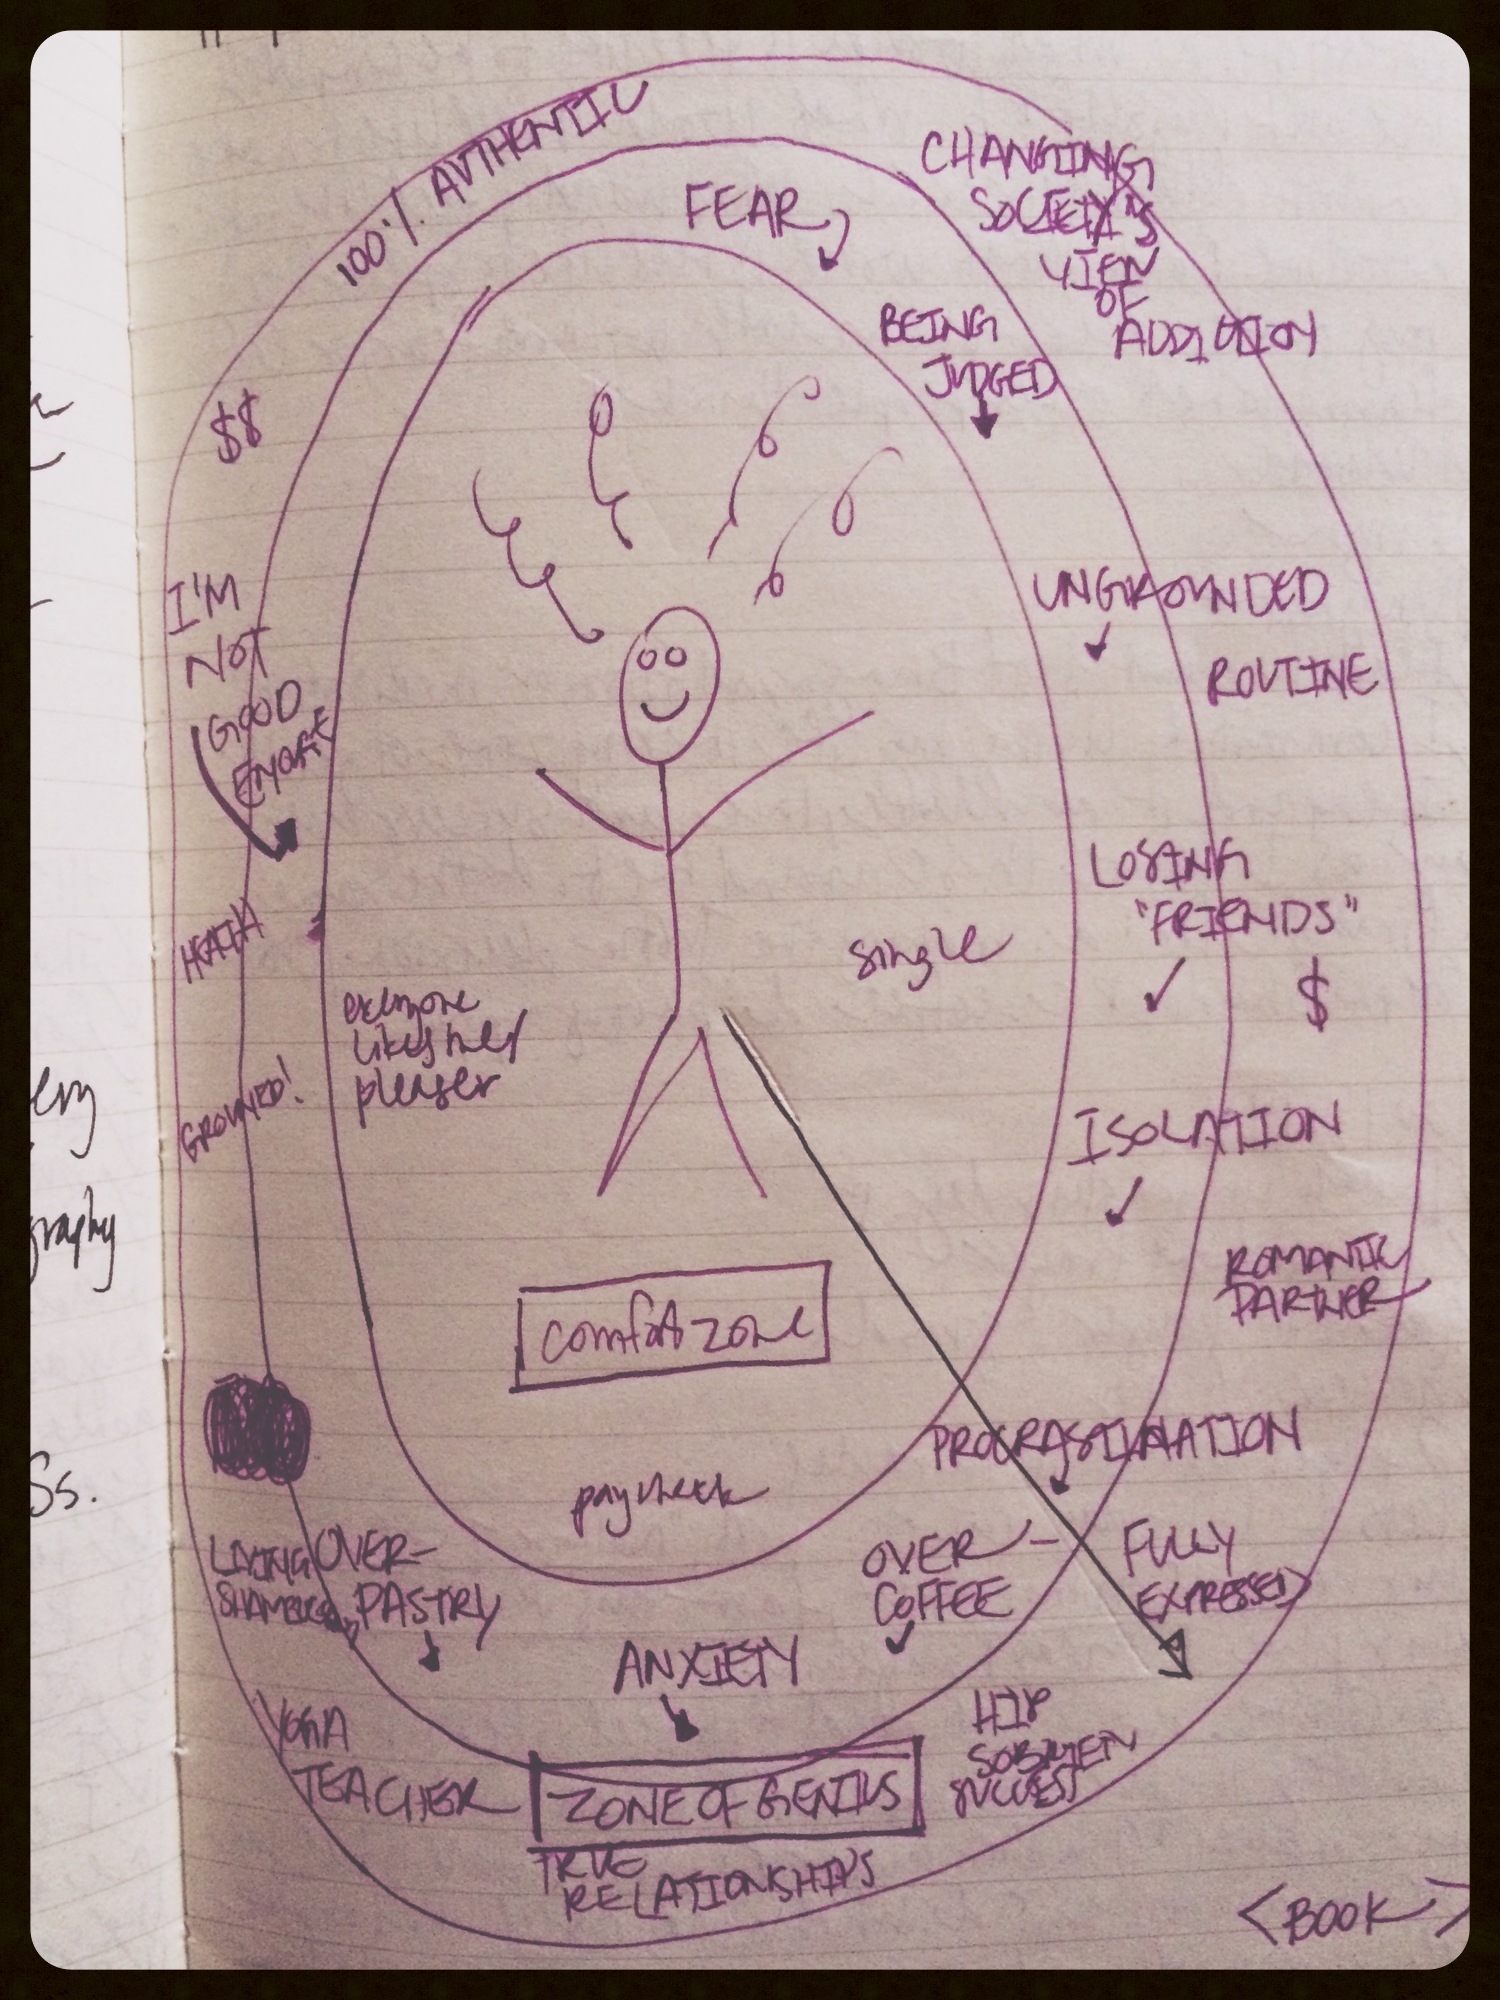 100% AUTHENTIC
CHANGING
SOCIETY'S
VIEW
OF
ADDICTION
FEAR
BEING
JUDGED
$$
I'M
NOT
GOOD
UNGROUNDED
ROUTINE
LOSING
"FRIENDS"
$
HEALTH
single
everyone
likes me/
pleaser
GROUNDED!
ISOLATION
ROMANTIC
PARTNER
comfort zone
PROCRASTINATION
paycheck
FULLY
EXPRESSED
LIVING
OVER-
PASTRY
OVER-
COFFEE
ANXIETY
YOGA
TEACHER
ZONE OF GENIUS
HIP
SUCCESS
TRUE
RELATIONSHIPS
<BOOK>
ery
graphy
Ss.